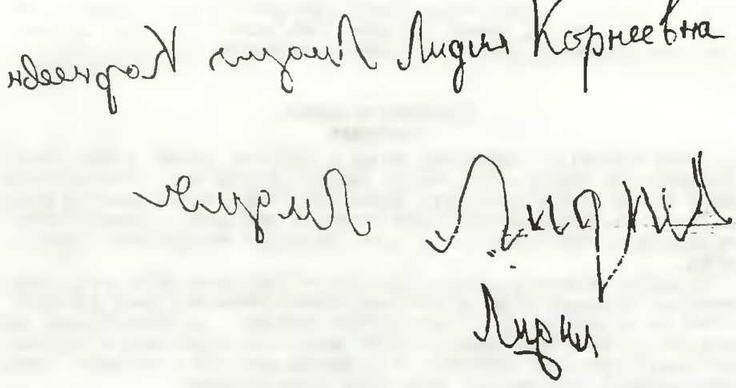 Лидия Корнеевна Лидия Корнеевн
Лидия Лидия
Лидия